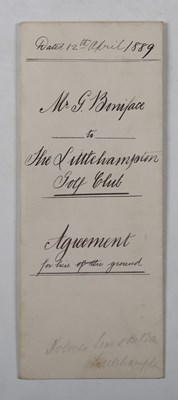 Dated 12th April 1889
Mr G. Boniface
to
The Littlehampton
Golf Club
Agreement
for use of the ground
Littlehampton